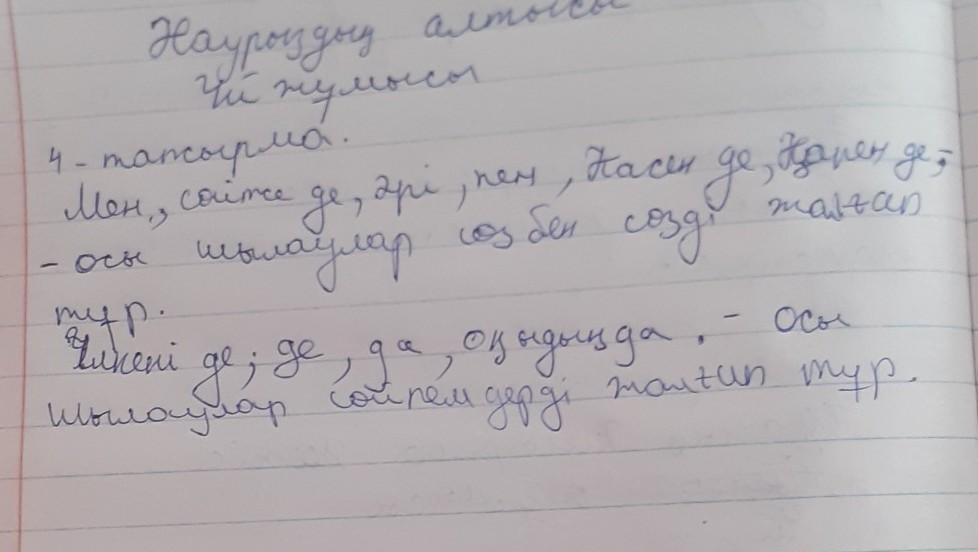 Наурыздың алтысы
Үй жұмысы
4-тапсырма.
Мен, сөйте де, әрі, пен, Насен де, Қанен де,-
- осы шылаулар сөзбен сөзді жалғап
тұр.
Үлкені де; де, да, оқыдың да. - осы
шылаулар сөйлемдерді жалғап тұр.